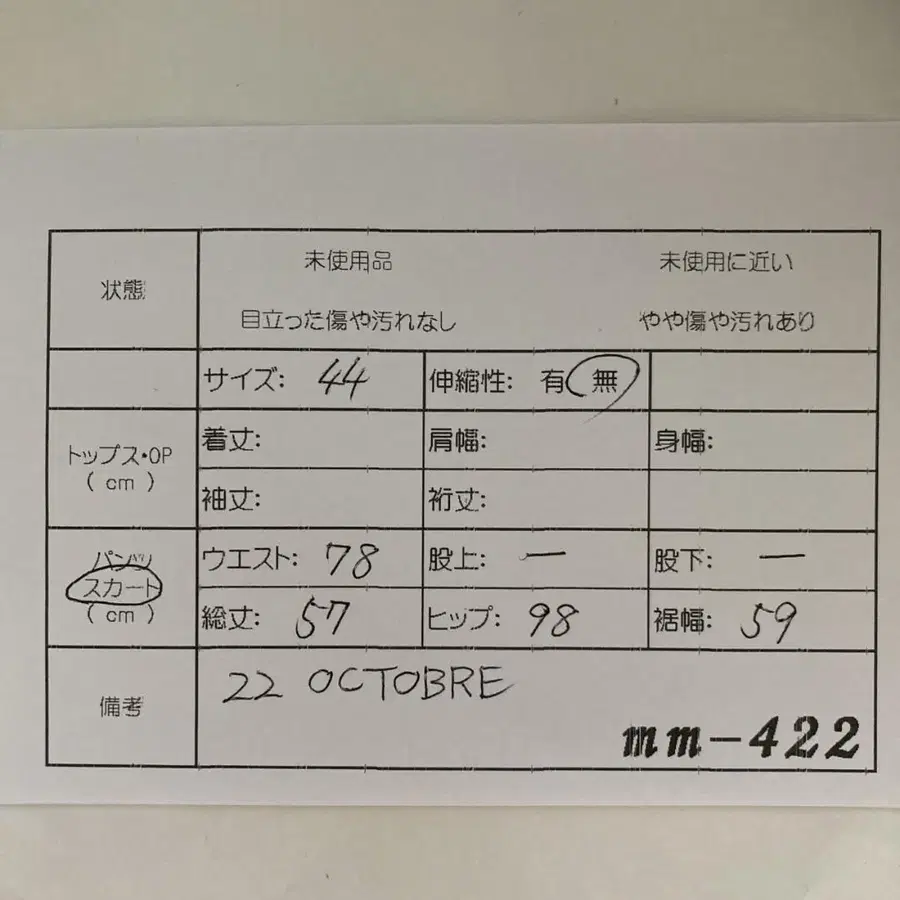 状態
未使用品 未使用に近い
目立った傷や汚れなし やや傷や汚れあり
サイズ: 44 伸縮性: 有 無
トップス・OP
( cm )
着丈: 肩幅: 身幅:
袖丈: 裄丈:
パンツ
スカート
( cm )
ウエスト: 78 股上: ー 股下: ー
総丈: 57 ヒップ: 98 裾幅: 59
備考
22 OCTOBRE
mm-422